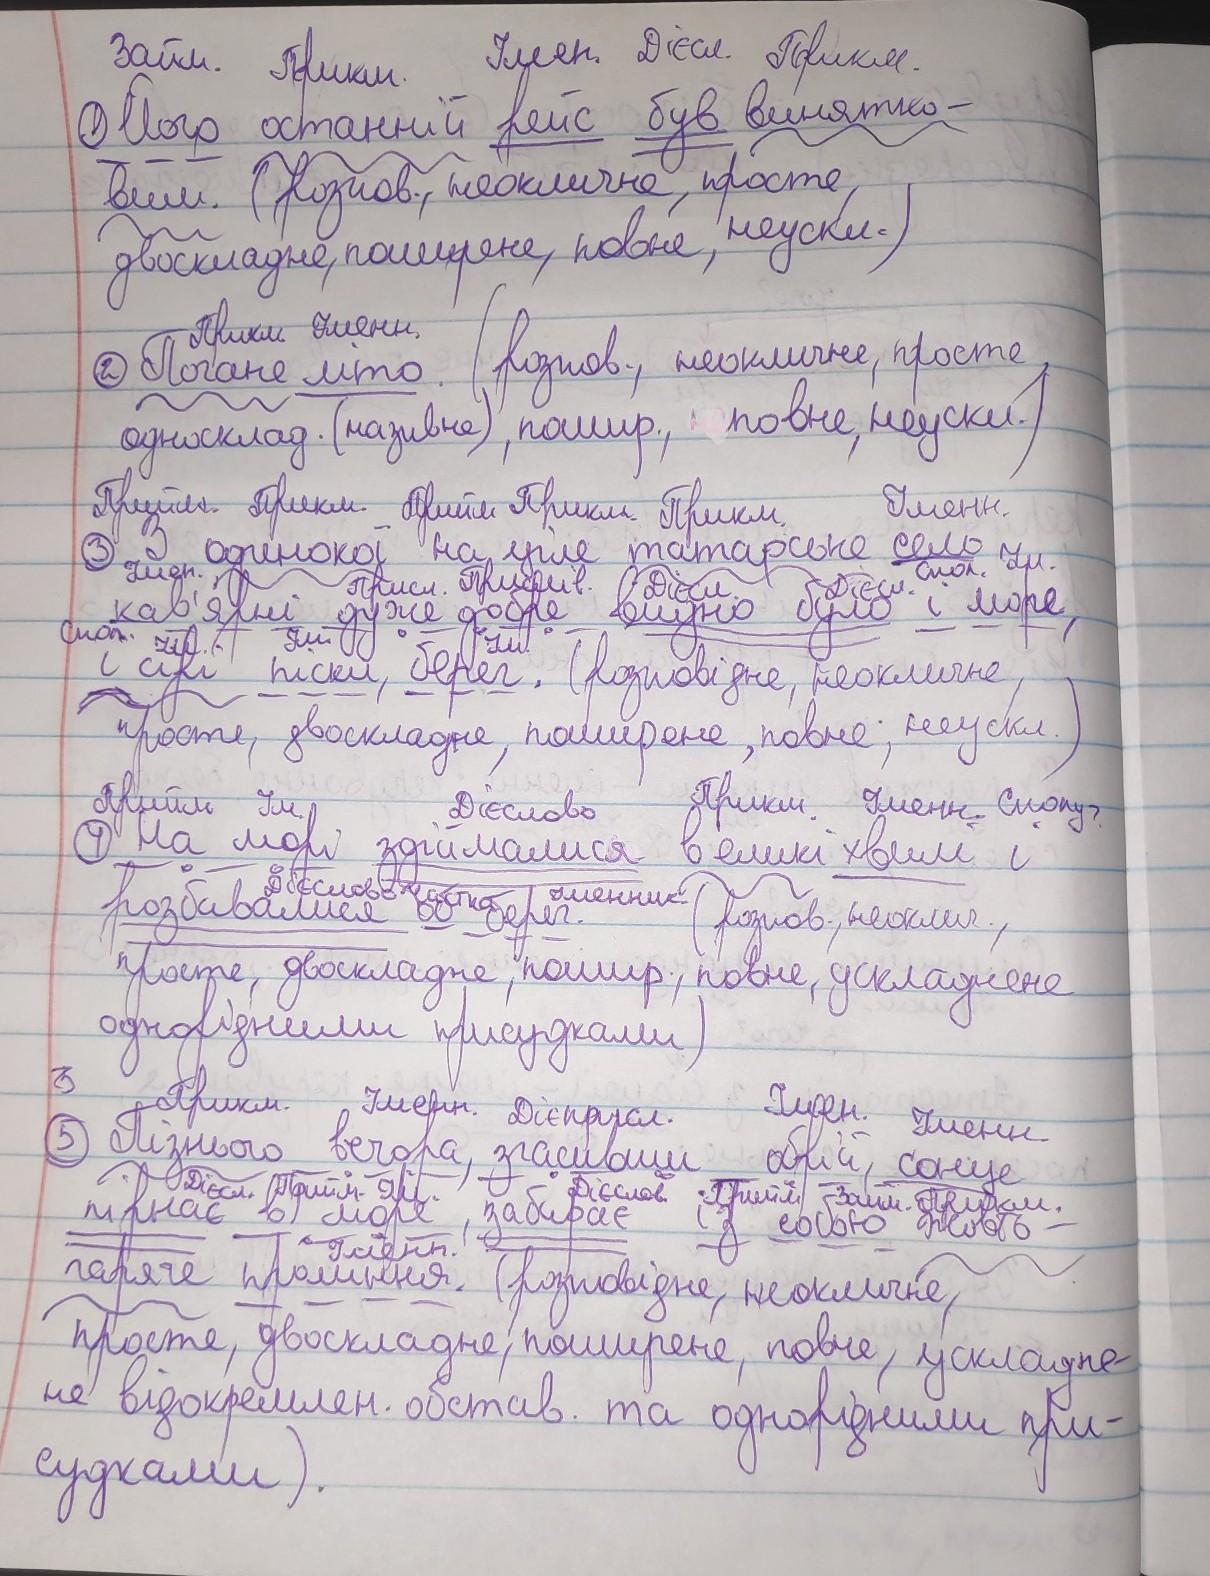 Займ. Прикм. Імен. Дієсл. Прикм.
① Його останній рейс був винятко-
вим. (Розпов., неокличне, просте,
двоскладне, поширене, повне, неускл.)
Прикм. Іменн.
② Погане літо. (розпов., неокличне, просте,
односклад. (називне), пошир., повне, неускл.)
Прийм. Прикм. Прийм Прикм. Прикм. Іменн.
③ З одинокої на ціле татарське село
Імен. Присл. Прислів. Дієсл. Дієсл. Спол. Ім.
кав'ярні дуже добре видно було і море,
Спол. Ім. Ім.
і сірі піски, берег. (розповідне, неокличне,
просте, двоскладне, поширене, повне, неускл.)
Прийм Ім. Дієслово Прикм. Іменн. Сполу?
④ На морі здіймалися великі хвилі і
Дієслово частка іменник
розбивалися об берег. (розпов., неоклич.,
просте, двоскладне, пошир., повне, ускладнене
однорідними присудками)
З
Прикм. Іменн. Дієприсл. Імен. Іменн.
⑤ Пізнього вечора, згасивши обрій, сонце
Дієсл. Прийм. Ім. Дієслов. Прийм Займ. Прикм.
пірнає в море, забирає із собою жовто-
Іменн.
гаряче проміння. (розповідне, неокличне,
просте, двоскладне, поширене, повне, ускладне-
не відокремлен. обстав. та однорідними при-
судками).